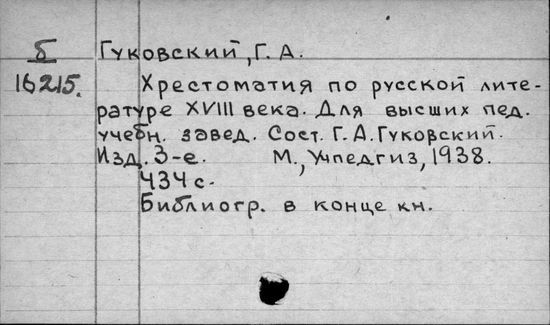 б Гуковский, Г. А.
16215. Хрестоматия по русской лите-
ратуре XVIII века. Для высших пед.
учебн. завед. Сост. Г. А. Гуковский.
Изд. 3-е. М., Учпедгиз, 1938.
434 с.
Библиогр. в конце кн.